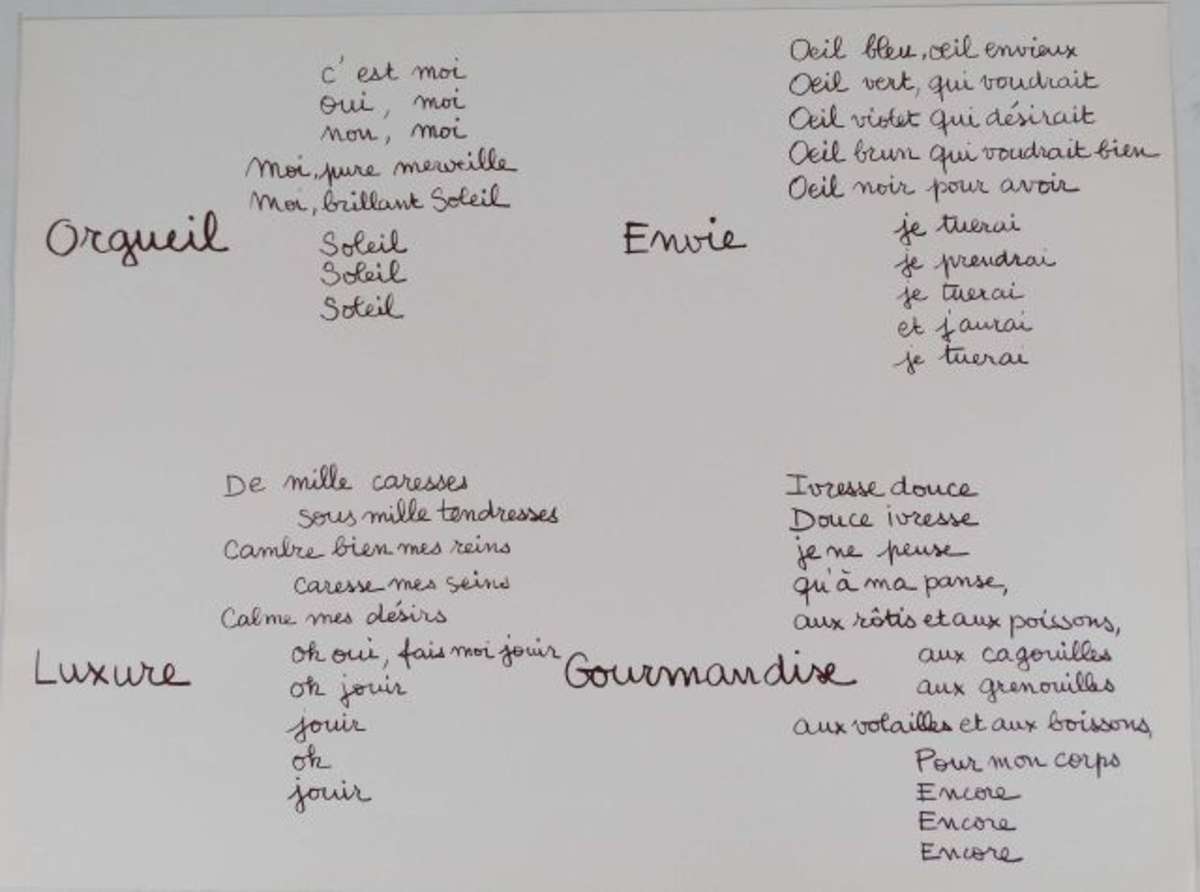 Orgueil
c'est moi
oui, moi
non, moi
Moi, pure merveille
Moi, brillant Soleil
Soleil
Soleil
Soleil
Envie
Oeil bleu, œil envieux
Oeil vert, qui voudrait
Oeil violet qui désirait
Oeil brun qui voudrait bien
Oeil noir pour avoir
je tuerai
je prendrai
je tuerai
et j'aurai
je tuerai
Luxure
De mille caresses
sous mille tendresses
Cambre bien mes reins
caresse mes seins
Calme mes désirs
oh oui, fais moi jouir
oh jouir
jouir
oh
jouir
Gourmandise
Ivresse douce
Douce ivresse
je ne pense
qu'à ma panse,
aux rôtis et aux poissons,
aux cagouilles
aux grenouilles
aux volailles et aux boissons,
Pour mon corps
Encore
Encore
Encore